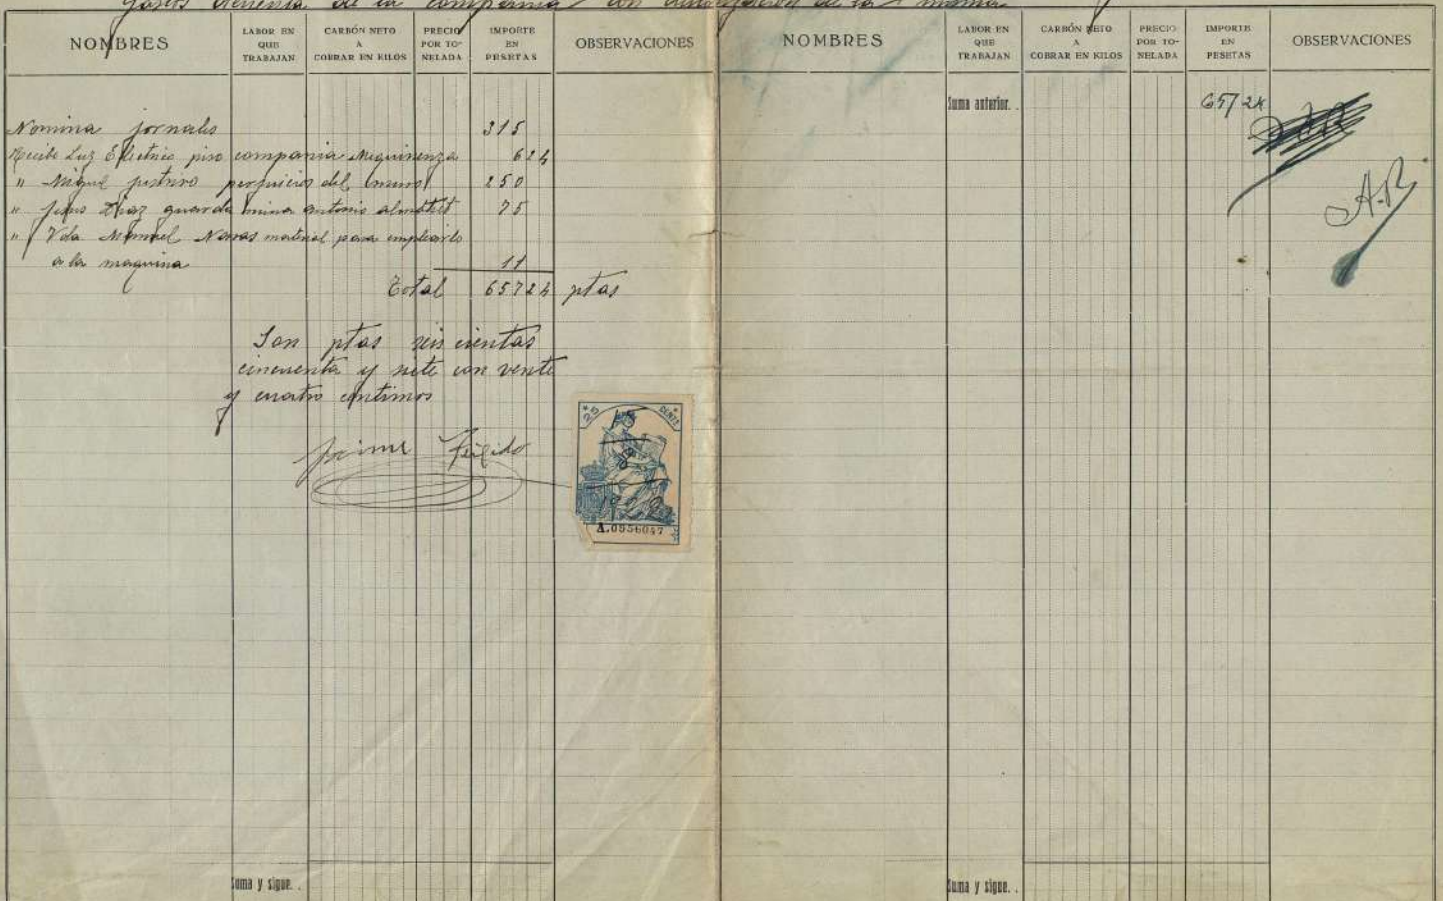 Gastos de la compañia con autorización de la misma
NOMBRES LABOR EN QUE TRABAJAN CARBÓN NETO A COBRAR EN KILOS PRECIO POR TO-NELADA IMPORTE EN PESETAS OBSERVACIONES
Nomina jornales 315
Recibo Luz Electrica piso compania Mequinenza 624
" Miguel perjuicios del muro 250
" Jesus Diaz guarda mina antonio 75
" Vda Manuel Navas material para emplearlo
a la maquina 11
Total 65724 ptas
Son ptas seis cientas
cincuenta y siete con vente
y cuatro centimos
Jaime
25 CENTS
A.0956047
Suma y sigue. .
NOMBRES LABOR EN QUE TRABAJAN CARBÓN NETO A COBRAR EN KILOS PRECIO POR TO-NELADA IMPORTE EN PESETAS OBSERVACIONES
Suma anterior. . 657 24
A.R
Suma y sigue. .